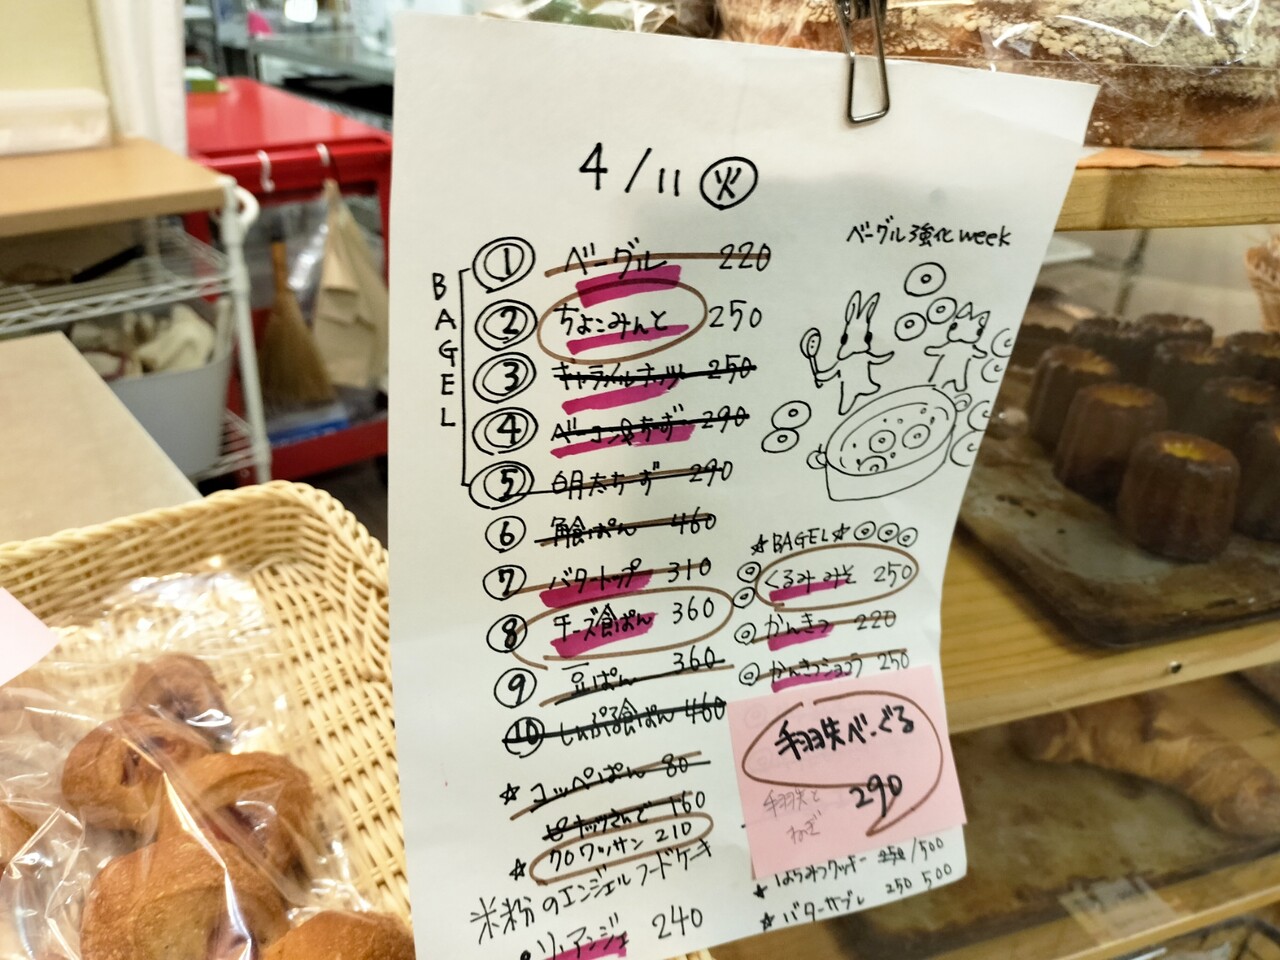 4/11 火
ベーグル強化week
BAGEL
① ベーグル 220
② ちょこみんと 250
③ キャラメルナッツ 250
④ ベーコン&ちーず 290
⑤ 明太ちーず 290
⑥ 角食ぱん 460
⑦ バタートップ 310
⑧ チーズ食ぱん 360
⑨ 豆ぱん 360
⑩ しんぷる食ぱん 460
☆ コッペぱん 80
ピーナッツさんど 160
☆ クロワッサン 210
米粉のエンジェルフードケーキ
240
☆BAGEL☆
くるみみそ 250
かんきつ 220
かんきつショコラ 250
明太べーぐる
290
明太と
ねぎ
★ はちみつクッキー 250/500
★ バターサブレ 250 500